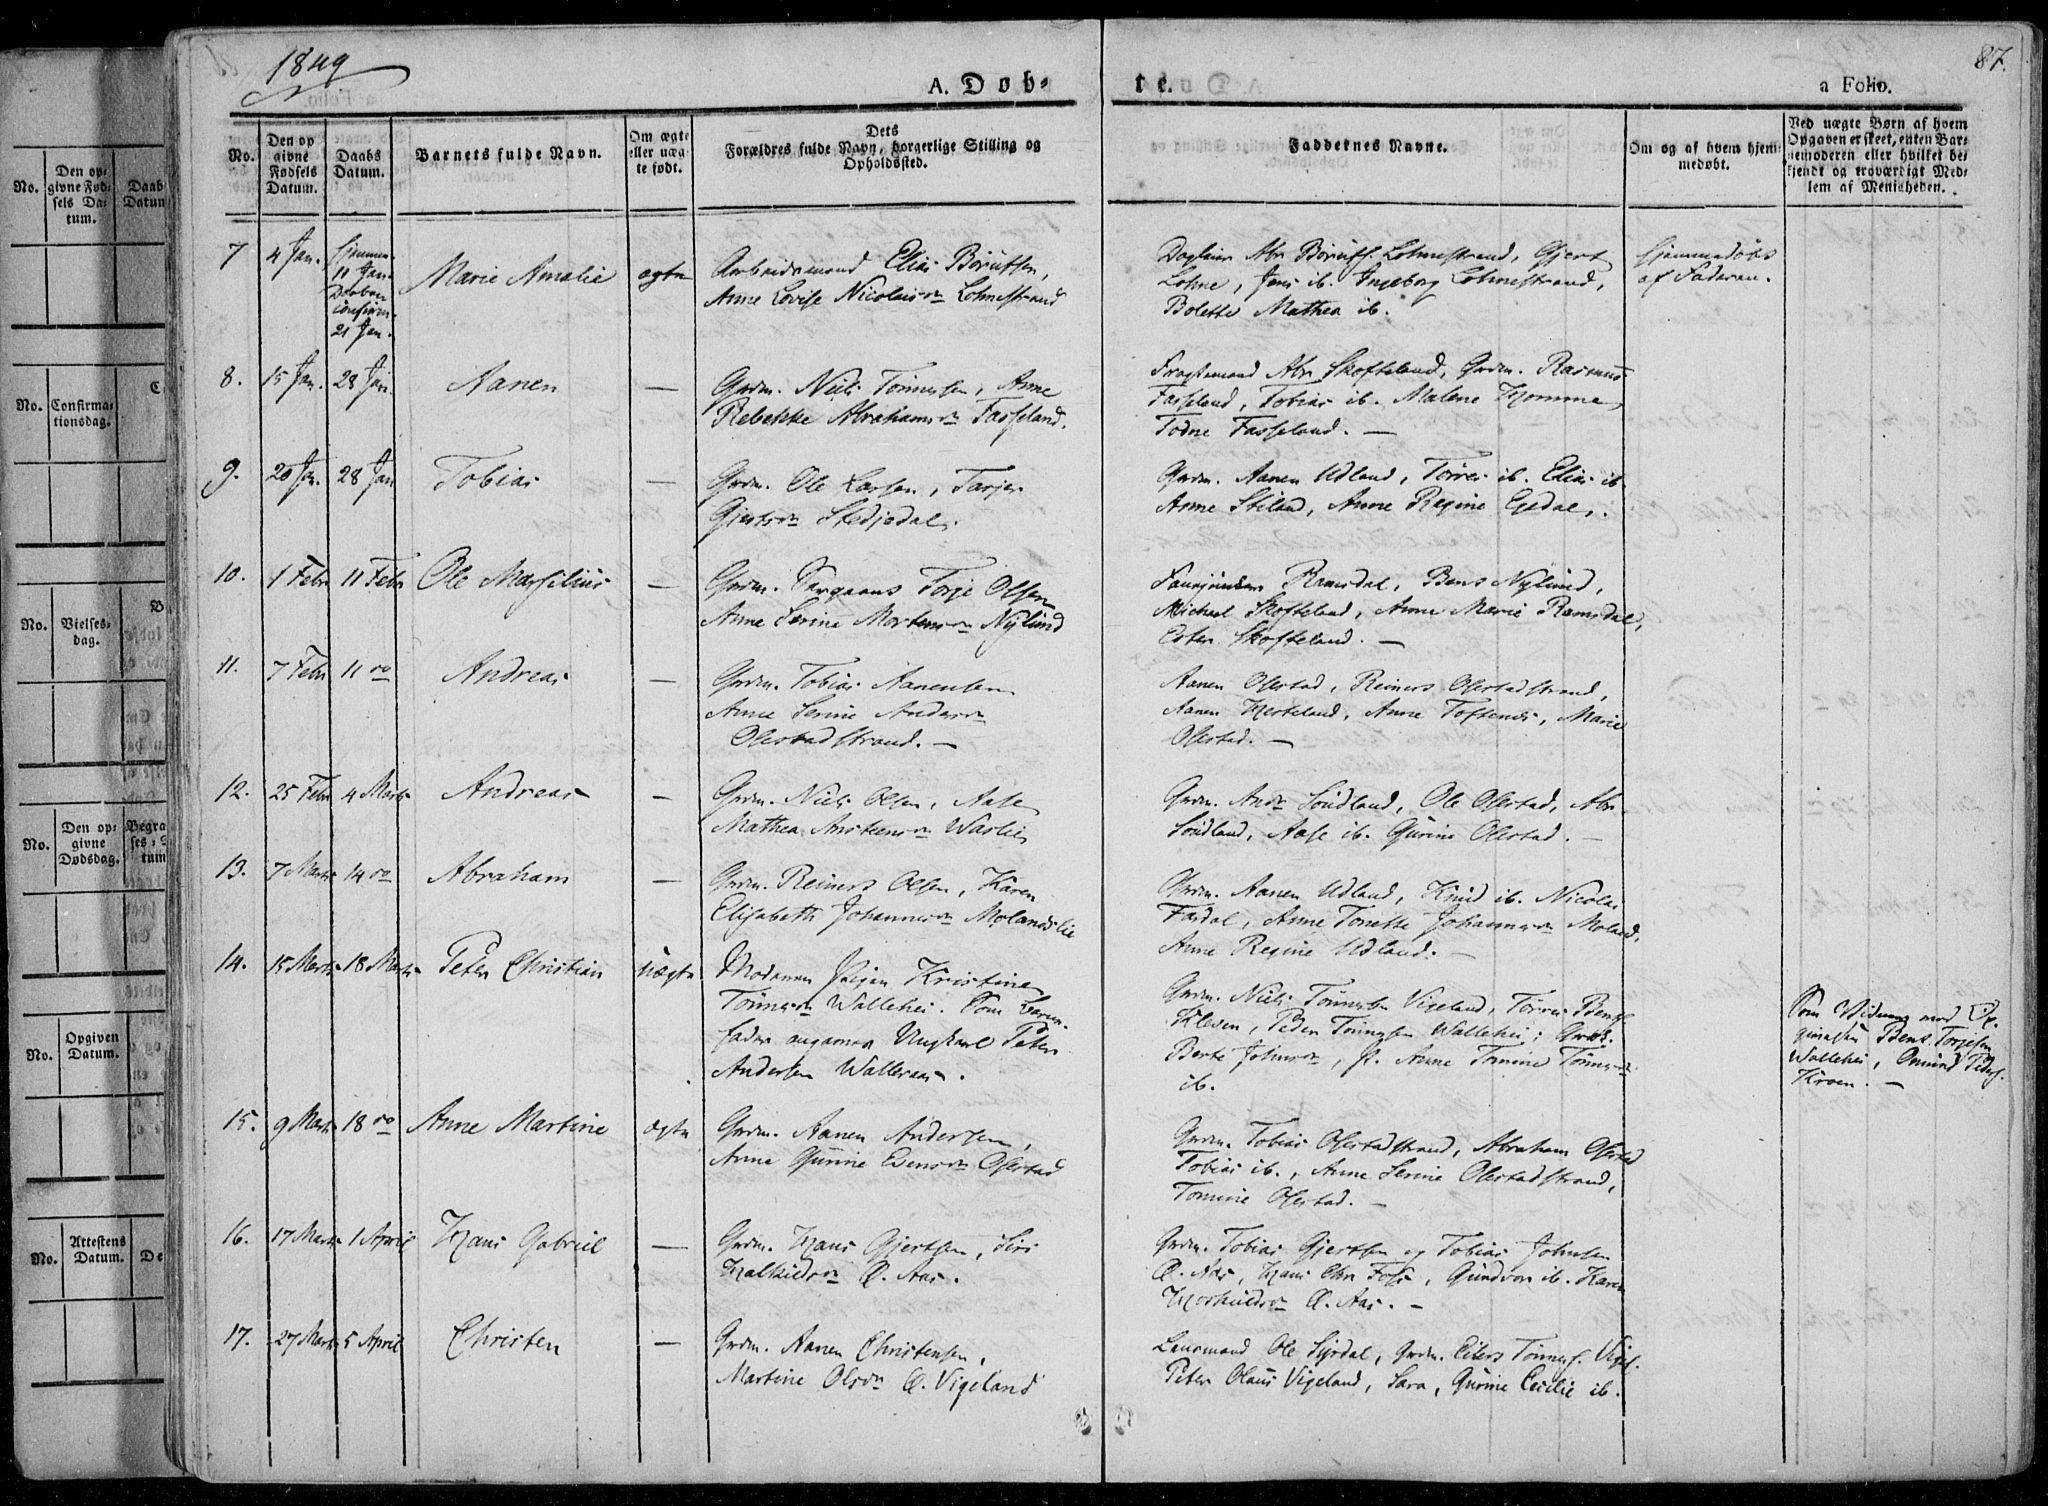 1849
87.
A. Døb-
te.
a Folio.
No.
Den op
givne
Fødsels
Datum.
Daabs
Datum.
Barnets fulde Navn.
Om ægte
eller uæg-
te født.
Dets
Forældres fulde Navn, borgerlige Stilling og
Opholdssted.
Faddernes Navne.
Om og af hvem hjem-
medøbt.
Ved uægte Børn af hvem
Opgaven er skeet, enten Bar-
nemoderen eller hvilket be-
kjendt og troværdigt Med-
lem af Menigheden.
7 4 Jan.
Hjemme
11 Jan.
Daaben
confirm.
21 Jan.
Marie Amalie
ægte
Arbeidsmand Elias Berntsen,
Anne Lovise Nicolaisdr Lohnestrand
Daglejer Abr Berntss. Lohnestrand, Gjert
Lohne, Jens ib. Ingeborg Lohnestrand,
Bolette Mathea ib.
Hjemmedøbt
af Faderen.
8. 15 Jan. 28 Jan. Aanen —
Grdm. Niels Tønnessen, Anne
Rebekke Abrahamsdr Fasseland.
Abr Skofteland, Grdm. Rasmus
Fasseland, Tobias ib. Malene Homme,
Todne Fasseland. —
9. 20 Jan. 28 Jan Tobias —
Grdm. Ole Larsen, Tarjer
Gjertsdr Stedjedal.
Grdm. Aanen Udland, Tørres ib. Elias ib
Anne Stiland, Anne Regine Egdal.
10. 1 Febr 11 Febr Ole Marsilius —
Grdm. Torje Olsen
Anne Serine Mortensdr Nylund
Ramsdal, Bent Nylund,
Michael Skofteland, Anne Marie Ramsdal,
Ester Skofteland. —
11. 7 Febr 11 do Andreas —
Grdm. Tobias Aanensen
Anne Serine Andersdr
Ofsestadstrand. —
Aanen Ofsestad, Reiners Ofsestadstrand,
Aanen Herteland, Anne Toftenes, Marie
Ofsestad. —
12. 25 Febr 4 Marts Andreas —
Grdm. Niels Olsen, Aase
Mathea Anstensdr Warlie
Grdm. Andr Sudland, Ole Ofsestad, Abr.
Sudland, Aase ib. Gurine Ofsestad. —
13. 7 Marts 14 do Abraham —
Grdm. Reiners Olsen, Karen
Elisabeth Johannesdr Molandslie
Grdm. Aanen Udland, Knud ib. Nicolai
Fardal, Anne Tonette Johannesdr Moland,
Anne Regine Udland. —
14. 15 Marts 18 Marts Peter Christian uægte
Moderen Pigen Kristine
Tønnesdr Wallehei. Som Barne-
fader angivet Ungkarl Peter
Andersen Walleraas.
Grdm. Niels Tønnessen Vigeland, Tørres Bents.
Kleven, Peder Tønnessen Wallehei;
Berte Johnsdr, P. Anne Tomine Tønnesdr
ib.
Som Vidner med
Bent Torjesen
Wallehei, Omund Peders.
Kroen. —
15. 9 Marts 18 do Anne Martine ægte
Grdm. Aanen Andersen,
Anne Gurine Evensdr Ofsestad
Grdm. Tobias Ofsestadstrand, Abraham Ofsestad
Tobias ib., Anne Serine Ofsestadstrand,
Tomine Ofsestad. —
16. 17 Marts 1 April Hans Gabriel —
Grdm. Hans Gjertsen, Siri
Ø. Aas.
Grdm. Tobias Gjertsen og Tobias Johnsen
Ø. Aas, Hans Chr Foss, Gundvor ib. Karen
Ø. Aas. —
17. 27 Marts 5 April Christen —
Grdm. Aanen Christensen,
Martine Olsdr Ø. Vigeland
Lensmand Ole Sirdal, Grdm. Eilers Tønness. Vigel.
Peter Olaus Vigeland, Sara, Gurine Cecilie ib.
No.
Den op-
givne Fød-
sels Da-
tum.
Daab
Datum
No.
Confirma-
tionsdag.
No.
Vielses-
dag.
No.
Den op-
givne
Dødsdag.
Begra
ses-
tum
No.
Opgiven
Datum.
No.
Attestens
Datum.
De